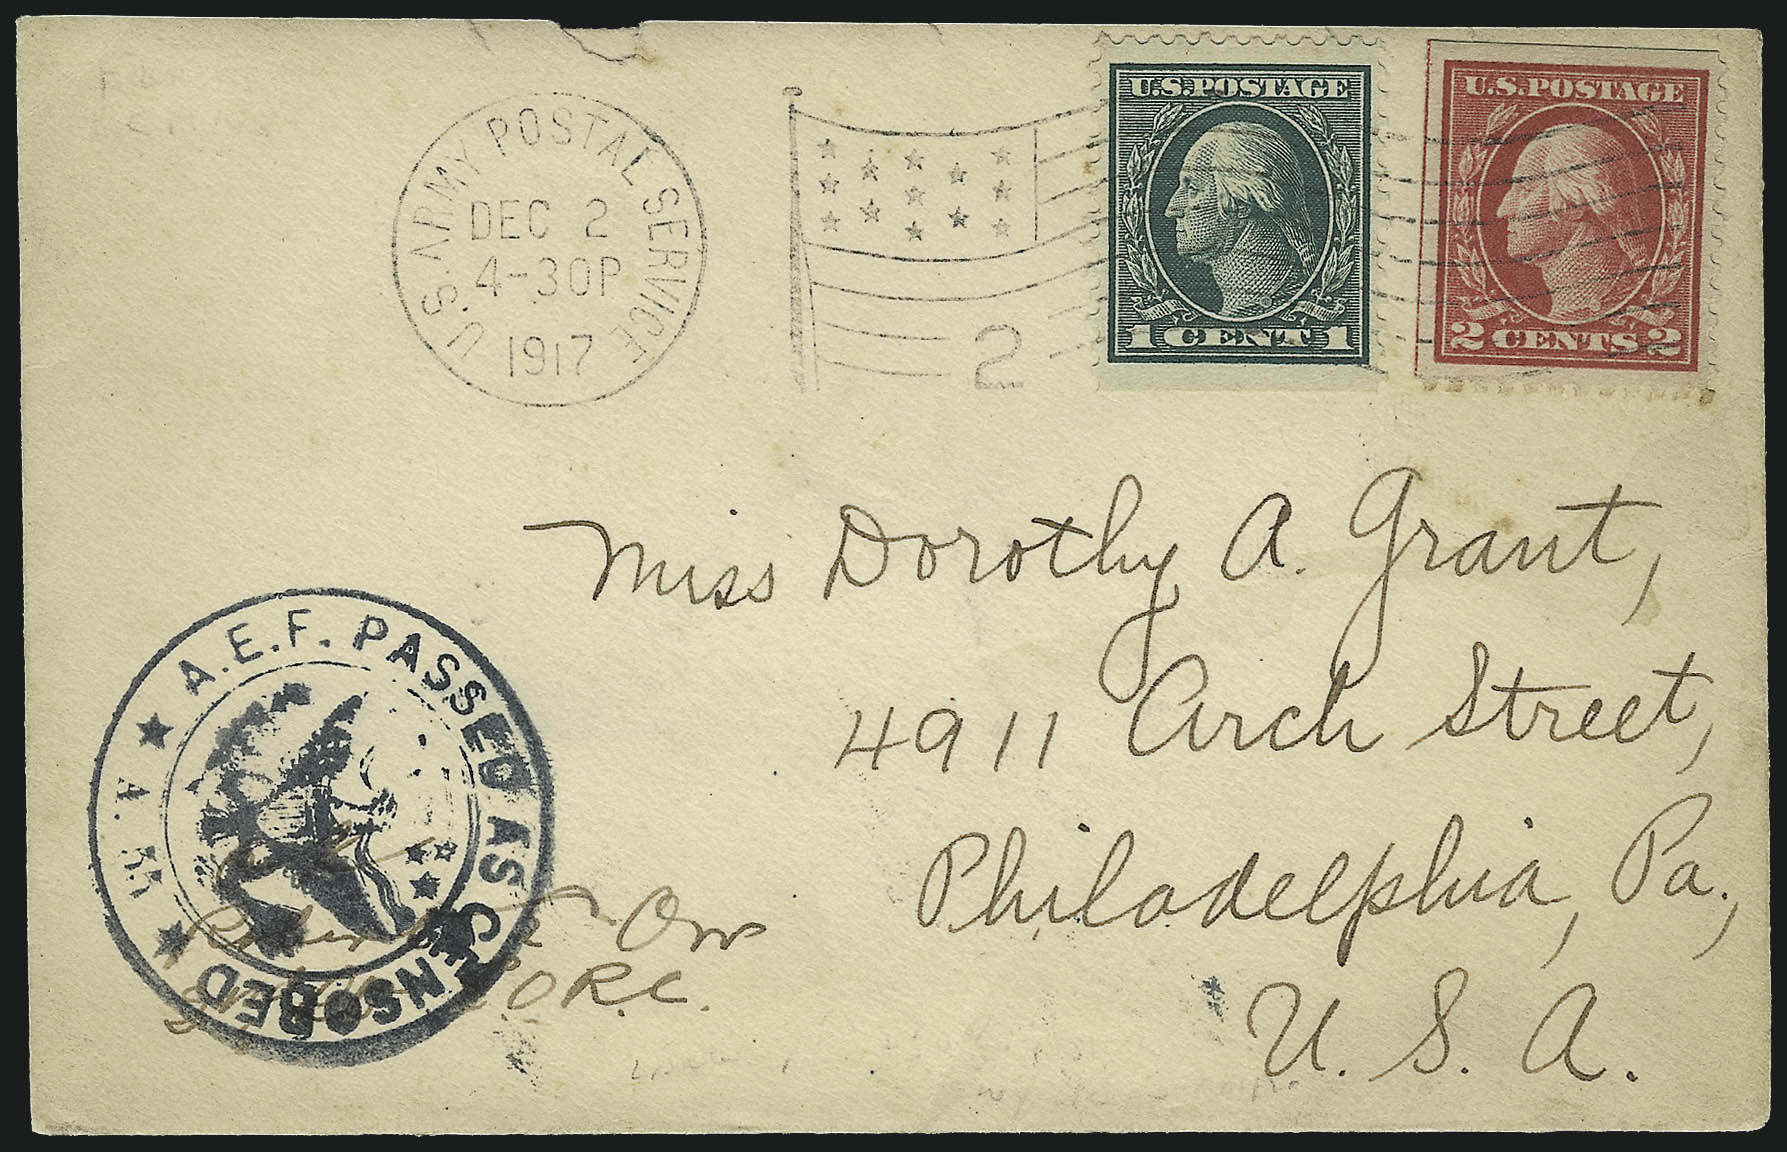 U.S. ARMY POSTAL SERVICE
DEC 2
4-30P
1917
2
U.S. POSTAGE
1 CENT 1
U.S. POSTAGE
2 CENTS 2
Miss Dorothy A. Grant,
4911 Arch Street,
Philadelphia, Pa.,
U. S. A.
A.E.F. PASSED AS CENSORED
A. 55
O.R.C.